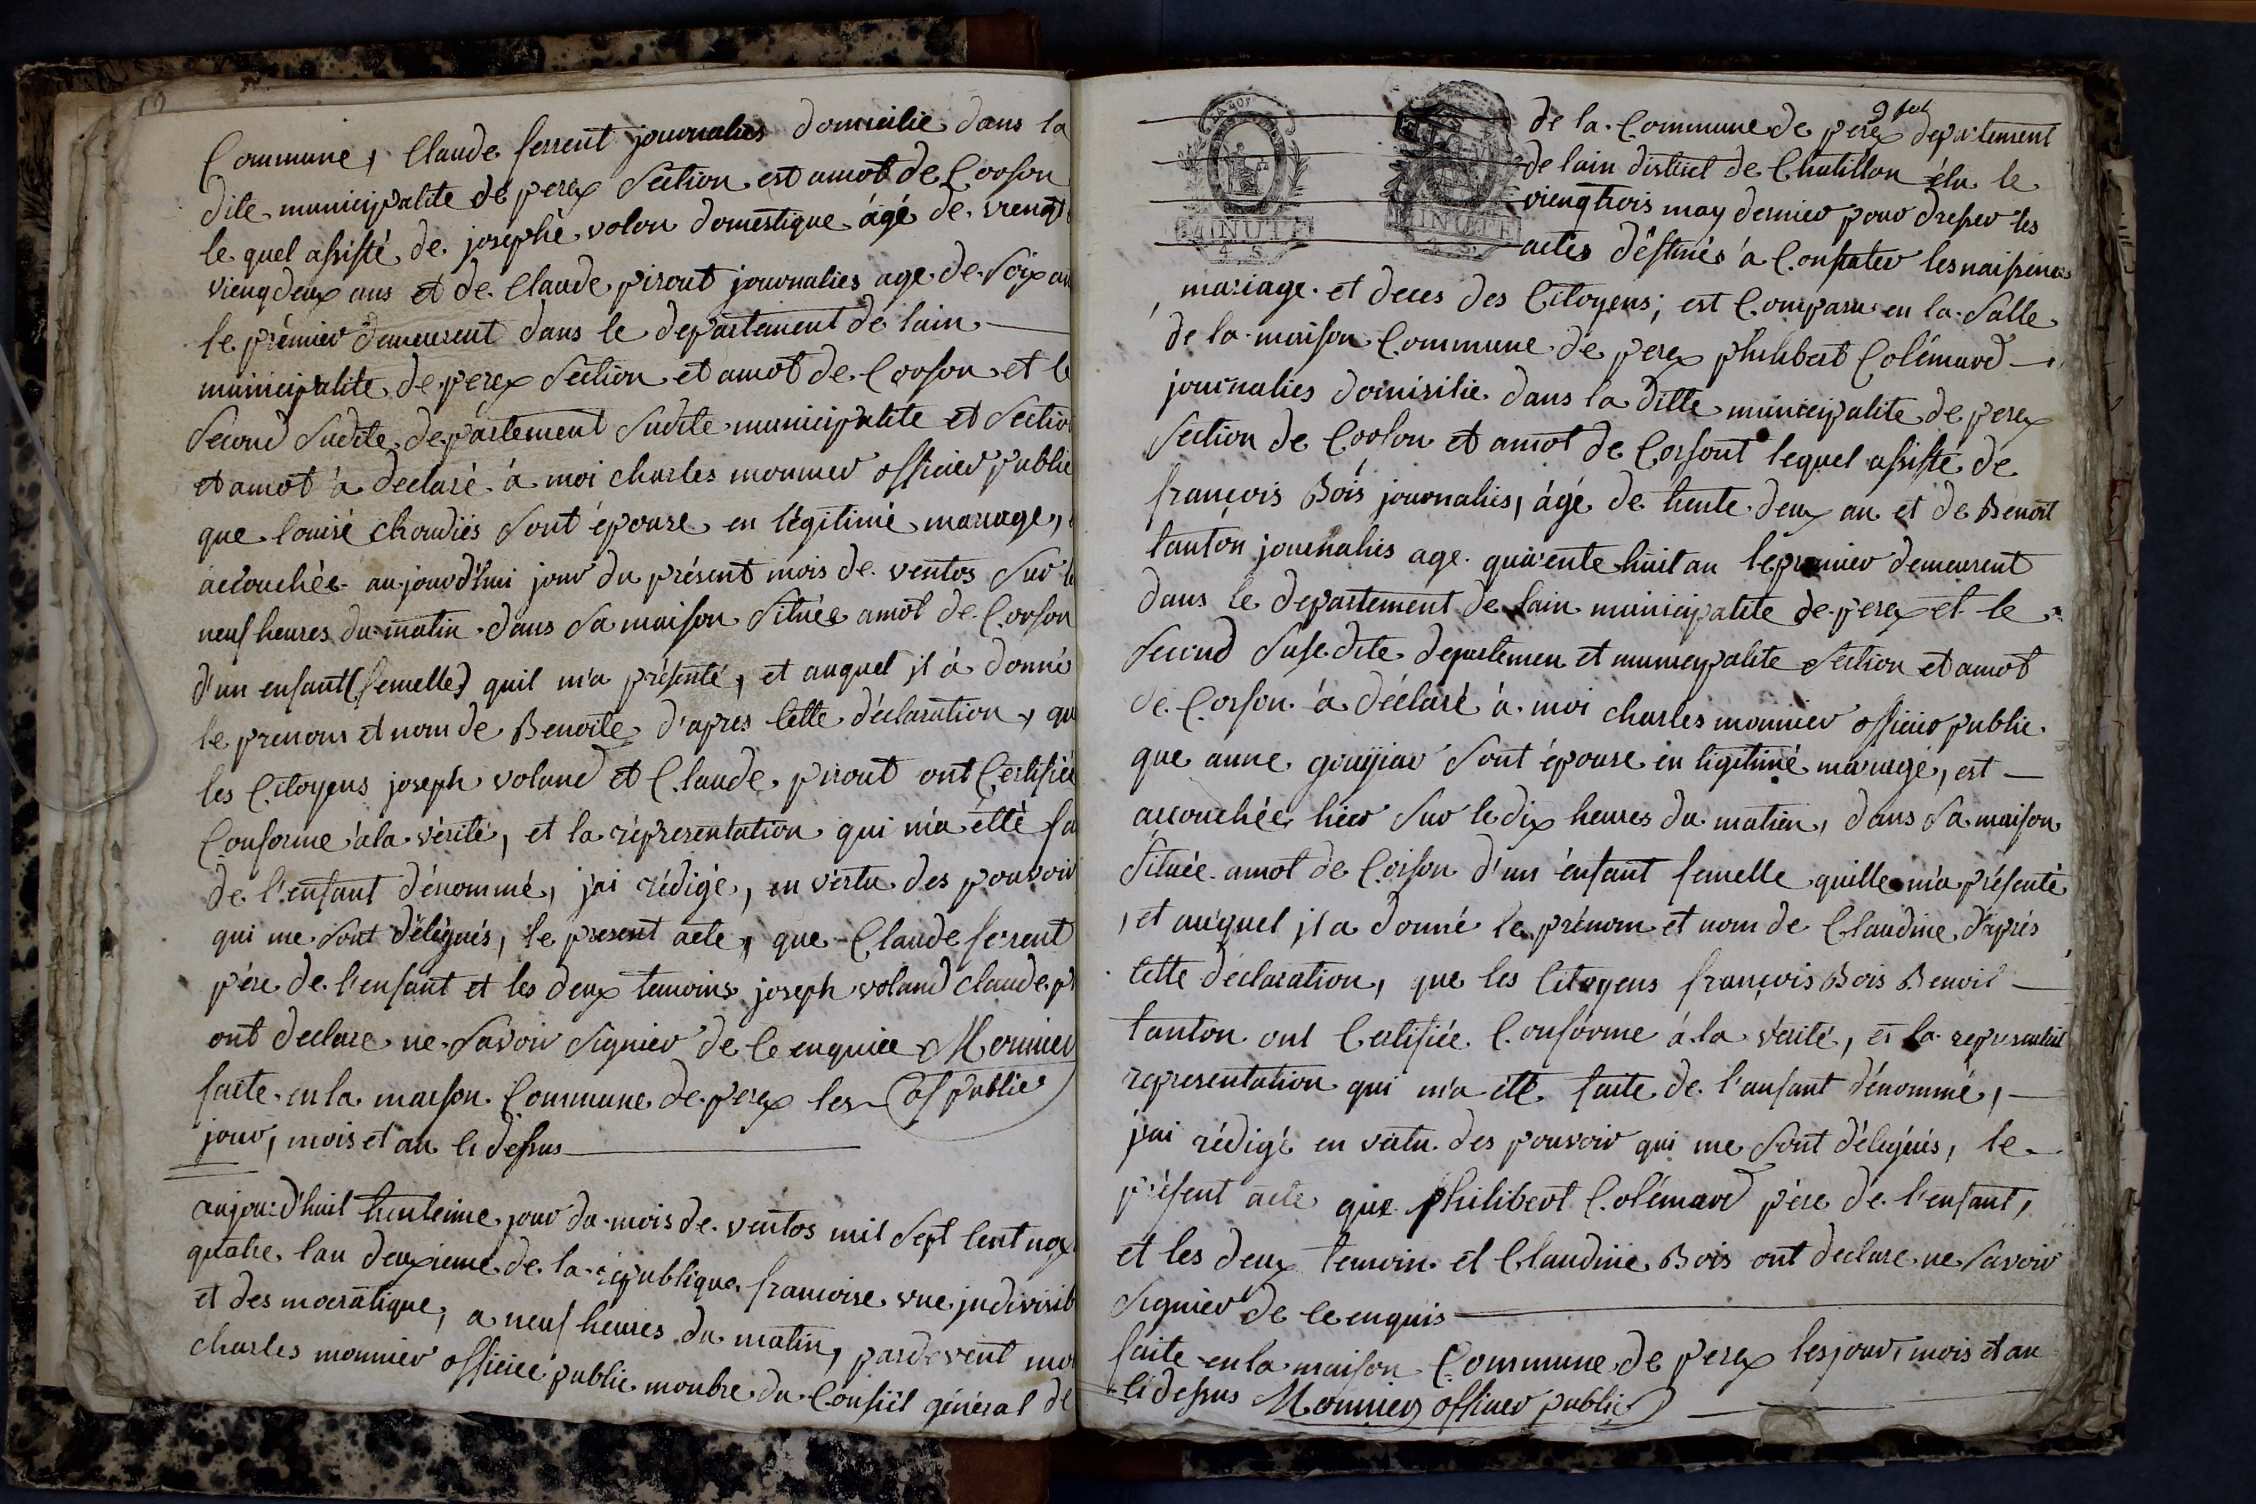 Commune, Claude ferrent journalies domicilie dans la
dite municipalite de perex Section et amot de Corson
le quel assisté de josephe volon domestique ágé de viengt
viengdeux ans et de Claude piront journalies age de Soix an
le prémier demeurent dans le departement de lain
municipalite de perex Section et amot de Corson et le
Second Sudite departement Sudite municipalite et Sectio
et amot à declaré à moi charles monnier officier public
que louisé choudiés Sont épouse en légitimé mariage,
accouchée aujourd'hui jour du présent mois de ventos Sur le
neuf heures du matin dans Sa maison Située amot de Corson
d'un enfant (femelle) quil m'a présenté, et auquel il à donné
le prenom et nom de Benoite d'apres Cette déclaration, que
les Citoyens joseph voland et Claude piront ont Certifiée
Conforme à la vérité, et la réprésentation qui m'a étté fa
de l'enfant dénommé, j'ai rédigé, en vértu des pouvoir
qui me Sont délégués, le present acte, que Claude ferrent
pére de l'enfant et les deux temoins joseph voland Claude pi
ont declare ne Savoir Signier de Ce enquiée Monnier
faite en la maison Commune de perex les of public
jour, mois et an Ci dessus
aujourd'huit trenteime jour du mois de ventos mil Sept Cent nox
quatre lan deuxieme de la république francoise vne jndivisib
et des mocratique, a neuf heures du matin, pardevent moi
charles monnier officice public monbre du Consiel général de
9 fol
de la Commune de perex departement
de lain district de Chatillon élu le
viengtrois may dernier pour dresser les
actes déstinés à Constater les naissences
MINUTE
4 S
MINUTE
4 S
mariage et deces des Citoyens; est Comparu en la Salle
de la maison Commune de perex philibert Colémard
journalies domisilie dans la ditte municipalite de perex
Section de Corson et amot de Corsont lequel assisté de
françois Bois journalies, ágé de trente deux an et de Benoit
tanton journalies age quarente huit an le premier demeurent
dans le departement de lain municipalite de perex et le
Second Suse dite departemen et municipalite Section et amot
de Corson à déclaré à moi charles monnier officier public
que anne goujiar Sont épouse en ligitimé mariage, est
accouchée hier Sur le dix heures du matien, dans Sa maison
Située amot de Corson d'un énfant femelle quille m'a présenté
, et auquel jl a donné le prénom et nom de Claudine d'aprés
Cette déclaration, que les Citoyens françois Bois Benoit
tanton ont Certifiée Conforme à la vérité, et la representati
representation qui m'a été faite de l'anfant dénommé,
j'ai rédigé en vértu des pouvoir qui me Sont délégués, le
présent acte que philibert Colémard pére de l'enfant,
et les deux temoin et Claudine Bois ont declare ne Savoir
Signier de Ce enquis
faite en la maison Commune de perex les jour, mois et an
Ci dessus Monnier officier public